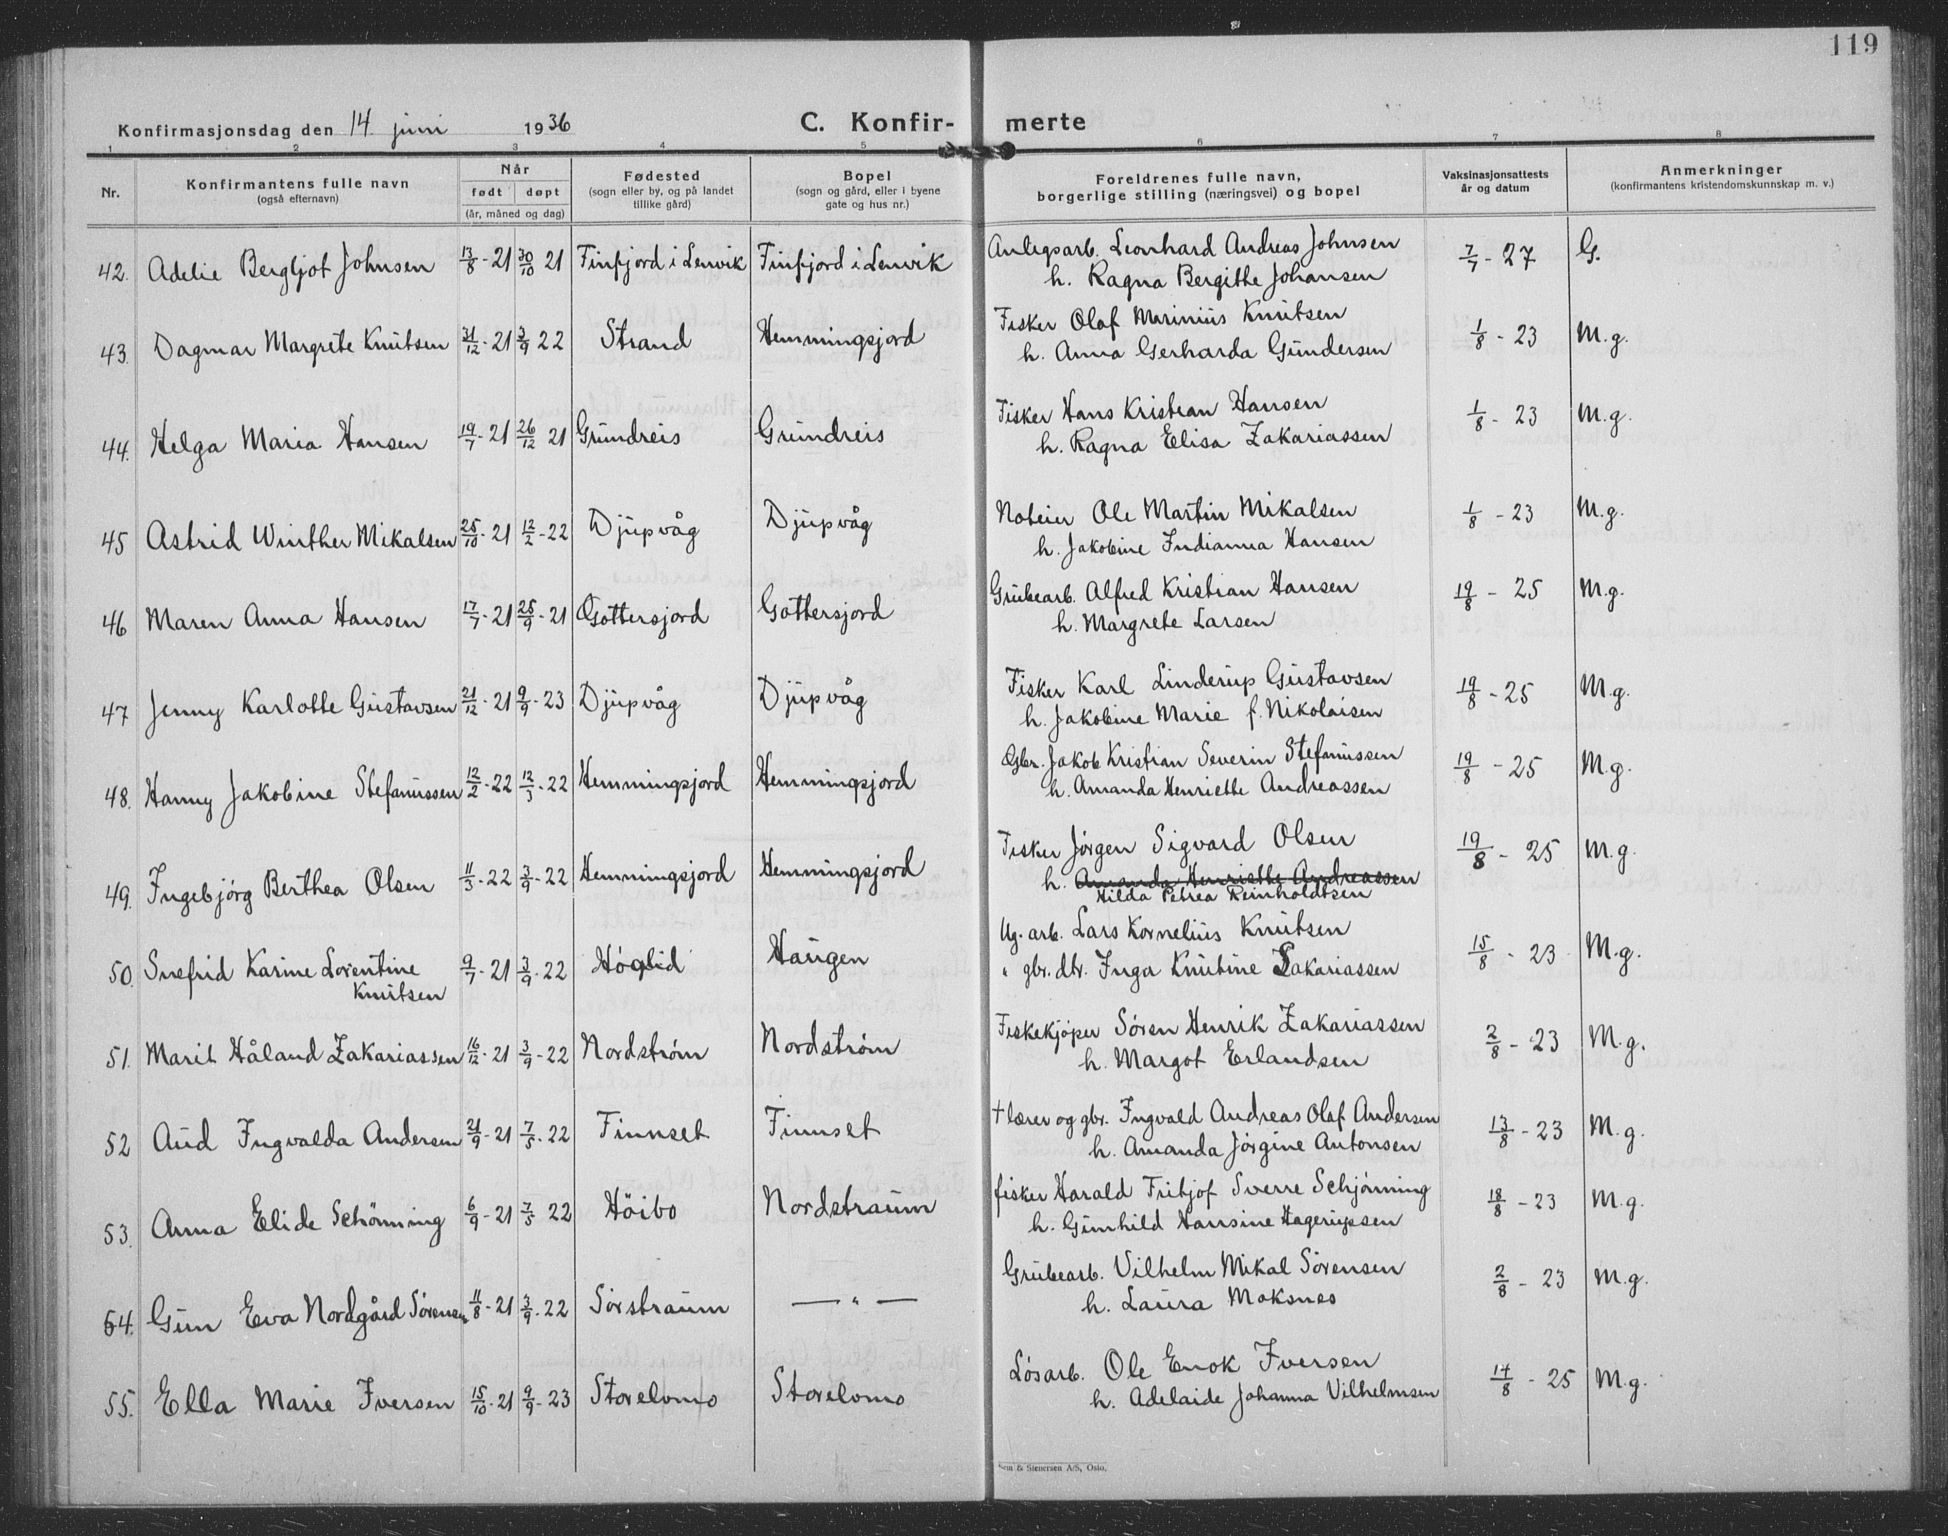 119
Konfirmasjonsdag den 14. juni 1936 C. Konfir- merte
1 2 3 4 5 6 7 8
Nr. Konfirmantens fulle navn (også efternavn) Når født døpt (år, måned og dag) Fødested (sogn eller by, og på landet tillike gård) Bopel (sogn og gård, eller i byene gate og hus nr.) Foreldrenes fulle navn, borgerlige stilling (næringsvei) og bopel Vaksinasjonsattests år og datum Anmerkninger (konfirmantens kristendomskunnskap m. v.)
42. Adelie Bergljot Johnsen 13/8-21 30/10 21 Finfjord i Lenvik Finfjord i Lenvik Anlegsarb. Leonhard Andreas Johnsen 7/7-27 G.
h. Ragna Bergitte Johansen
43. Dagmar Margrete Knutsen 31/12-21 3/9 22 Strand Hemmingsjord Fisker Olaf Marinius Knutsen 1/8-23 M.g.
h. Anna Gerharda Gundersen
44. Helga Maria Hansen 19/7-21 26/12 21 Grundreis Grundreis Fisker Hans Kristian Hansen 1/8-23 M.g.
h. Ragna Elisa Zakariassen
45 Astrid Winther Mikalsen 25/10-21 12/2-22 Djupvåg Djupvåg Noteier Ole Martin Mikalsen 1/8-23 M.g.
h. Jakobine Indianna Hansen
46 Maren Anna Hansen 17/7-21 25/9-21 Gottersjord Gottersjord Grubearb. Alfred Kristian Hansen 19/8-25 M.g.
h. Margrete Larsen
47 Jenny Karlotte Gustavsen 21/12-21 9/9-23 Djupvåg Djupvåg Fisker Karl Linderup Gustavsen 19/8-25 M.g.
h. Jakobine Marie f. Nikolaisen
48. Hanny Jakobine Stefanussen 12/2-22 12/3-22 Hemmingsjord Hemmingsjord Gbr. Jakob Kristian Severin Stefanussen 19/8-25 M.g.
h. Amanda Henriette Andreassen
49. Ingebjörg Berthea Olsen 11/3-22 3/9-22 Hemmingsjord Hemmingsjord Fisker Jørgen Sigvard Olsen 19/8-25 M.g.
h. Amanda Henriette Andreassen
Hilda Petrea Reinholdtsen
50. Snefrid Karine Lorentine 9/7-21 3/9-22 Höglid Haugen Ug. arb. Lars Kornelius Knutsen 15/8-23 M.g.
Knutsen " gbr. dtr. Inga Knutine Zakariassen
51. Marit Håland Zakariassen 16/12-21 3/9-22 Nordstrøm Nordstrøm Fiskekjøper Søren Henrik Zakariassen 2/8-23 M.g.
h. Margot Erlandsen
52 Aud Ingvalda Andersen 21/9-21 7/5-22 Finnset Finnset † lærer og gbr. Ingvald Andreas Olaf Andersen 13/8-23 M.g.
h. Amanda Jörgine Antonsen
53. Anna Elide Schönning 6/9-21 7/5 22 Höibo Nordstraum fisker Harald Fritjof Sverre Schjönning 18/8-23 M.g.
h. Gunhild Hansine Hagerupsen
54. Gun Eva Nordgård Sörensen 11/8-21 3/9-22 Sörstraum — " — Grubearb. Vilhelm Mikal Sörensen 2/8-23 M.g.
h. Laura Moksnes
55. Ella Marie Iversen 15/10-21 9/9-23 Storelvmo Storelvmo Lösarb. Ole Enok Iversen 14/8-25 M.g.
h. Adelaide Johanna Vilhelmsen
Sem & Stenersen A/S, Oslo.